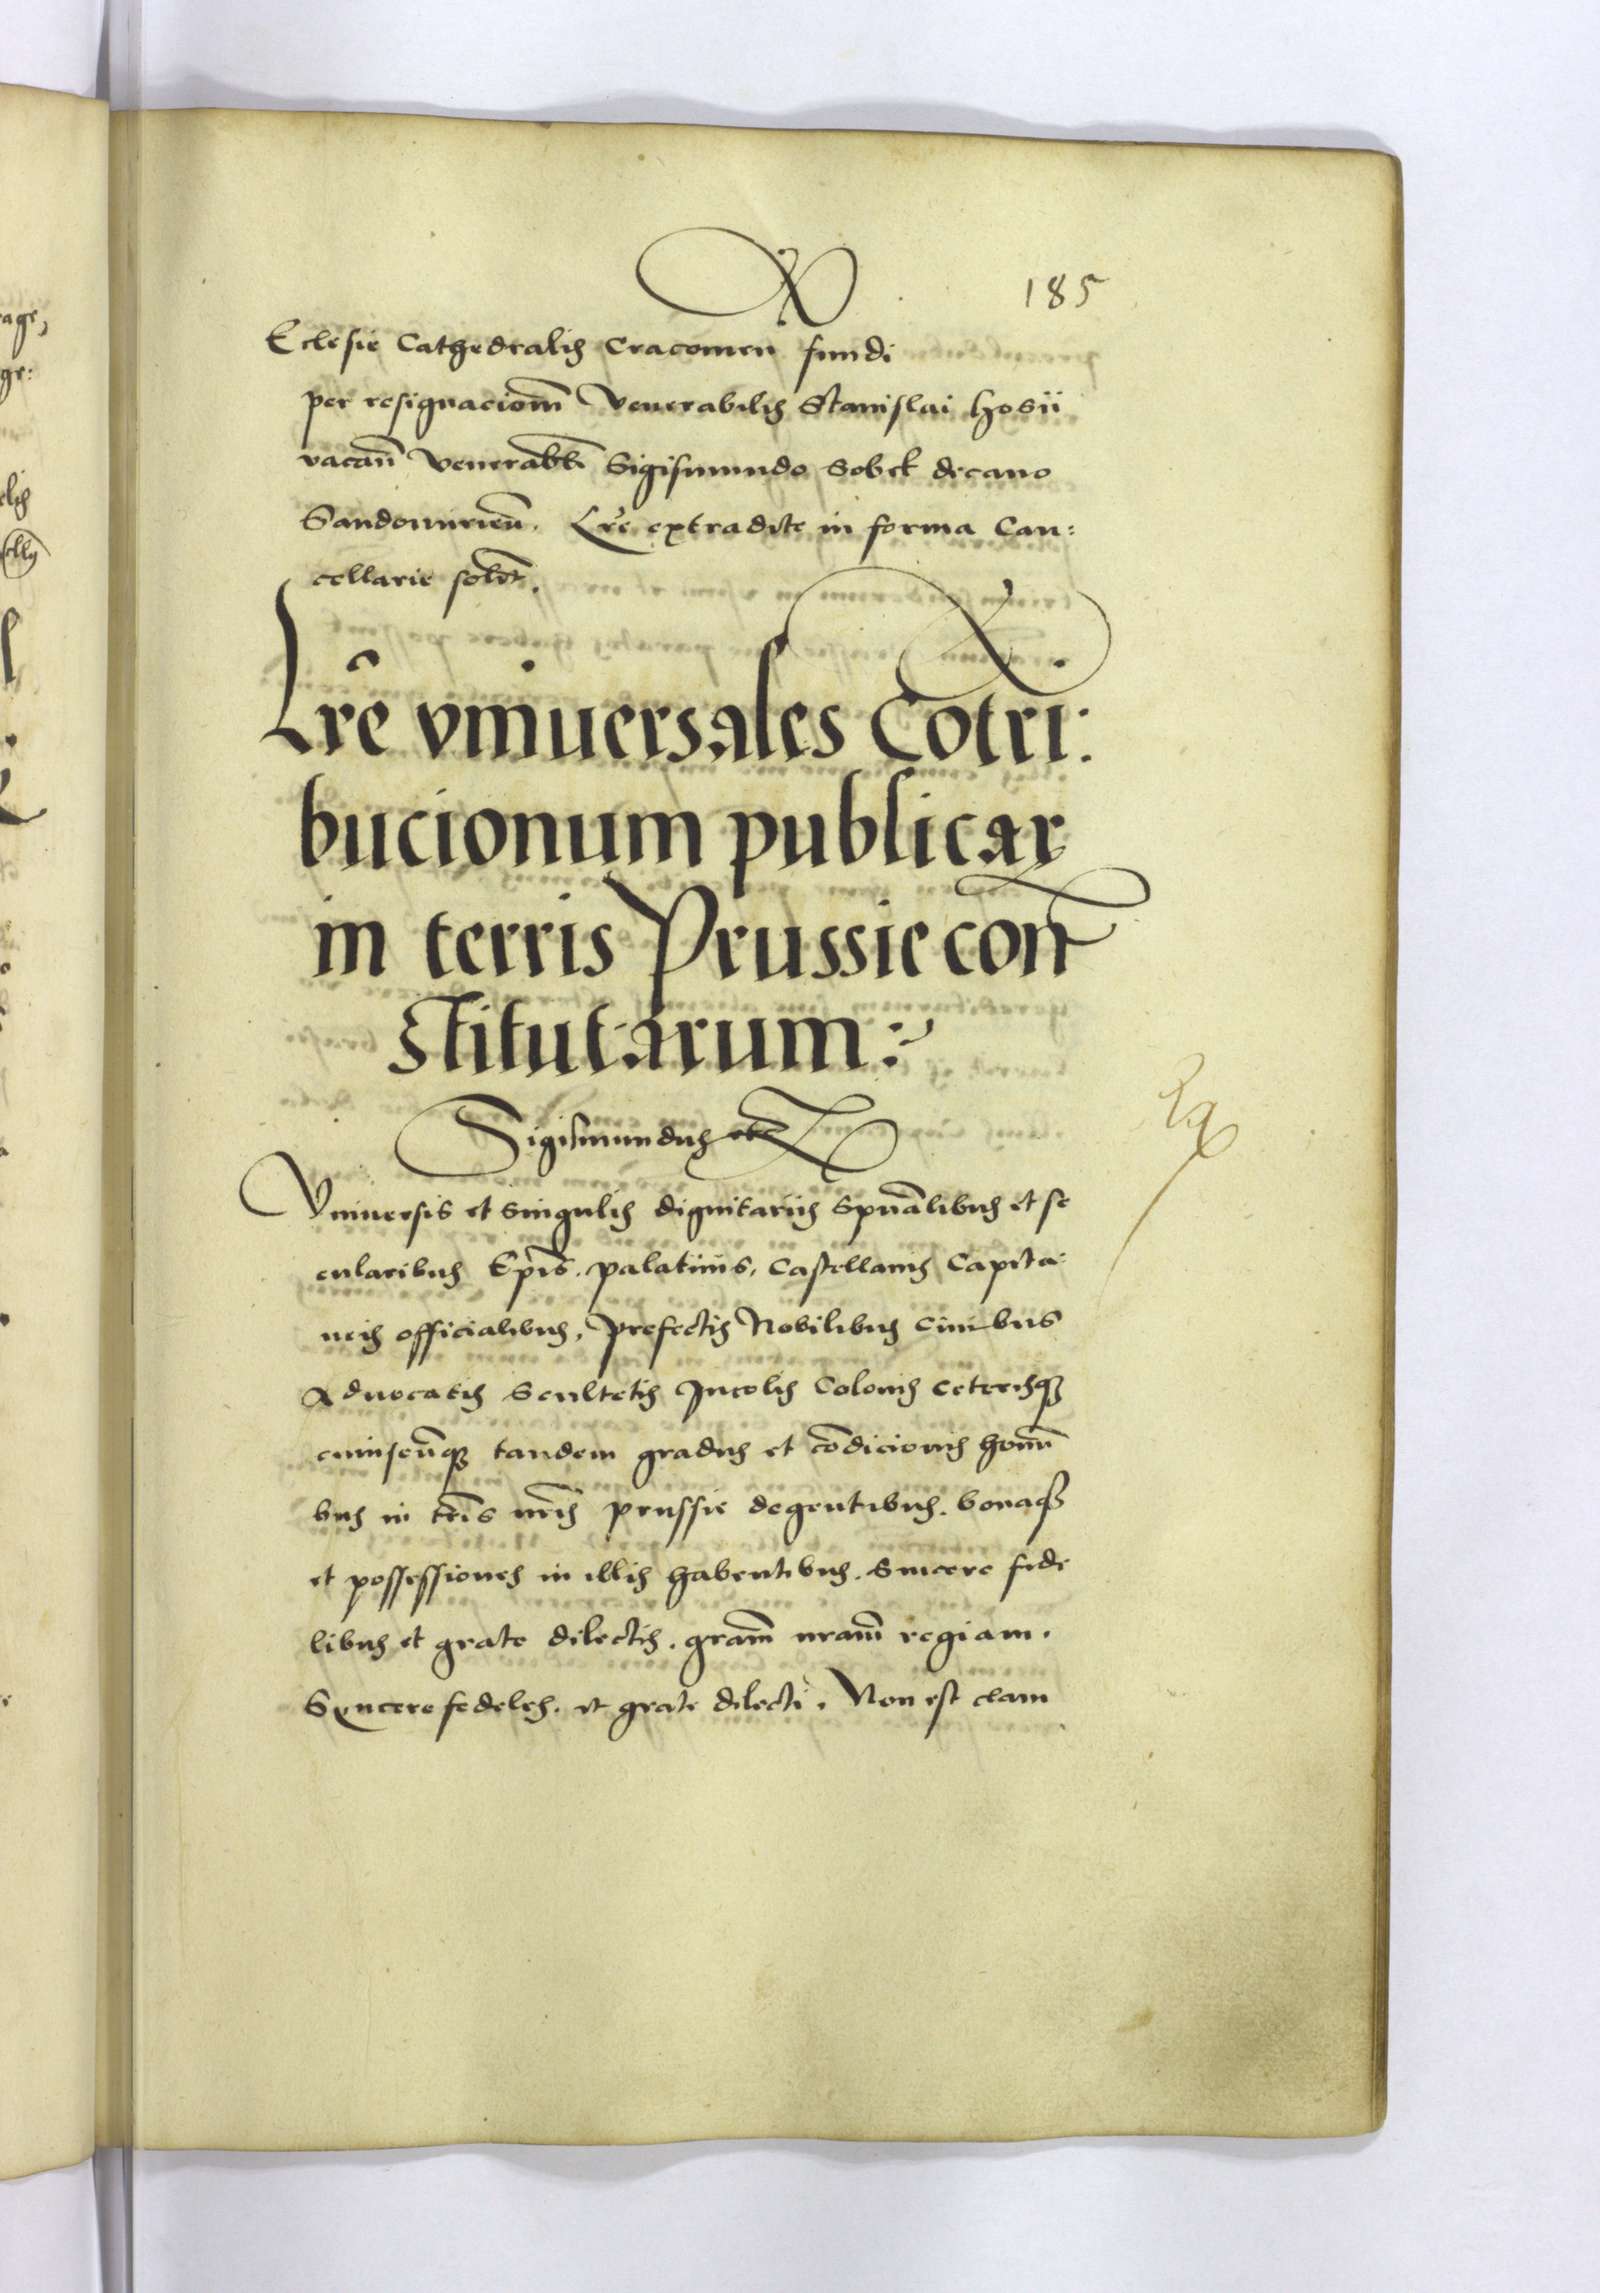 185
Eclesie Cathedralis Cracovien̄ fundi
per resignacionē Venerabilis Stanislai Hosii
vacan̄ Venerabl̄i Sigismundo Sobek decano
Sandomirien̄. Lr̄e extradite in forma Can:
cellarie solit̄.
Lr̄e vniuersales Cōtri:
bucionum publicar
in terris Prussie con
stitutarum:
Sigismundus etc
Vniuersis et singulis dignitariis spūalibus et se
cularibus Ep̄is. palatinis, Castellanis Capita
neis officialibus, Prefectis Nobilibus Ciuibus
Aduocatis Scultetis Incolis Colonis ceterisqꝫ
cuiuscūqꝫ tandem gradus et cōdicionis homī
bus in terr̄is nr̄is Prussie degentibus. bonaqꝫ
et possessiones in illis habentibus. Sincere fide
libus et grate dilectis. gram̄ nram̄ regiam.
Syncere fedeles. et grate dilecti. Non est clam